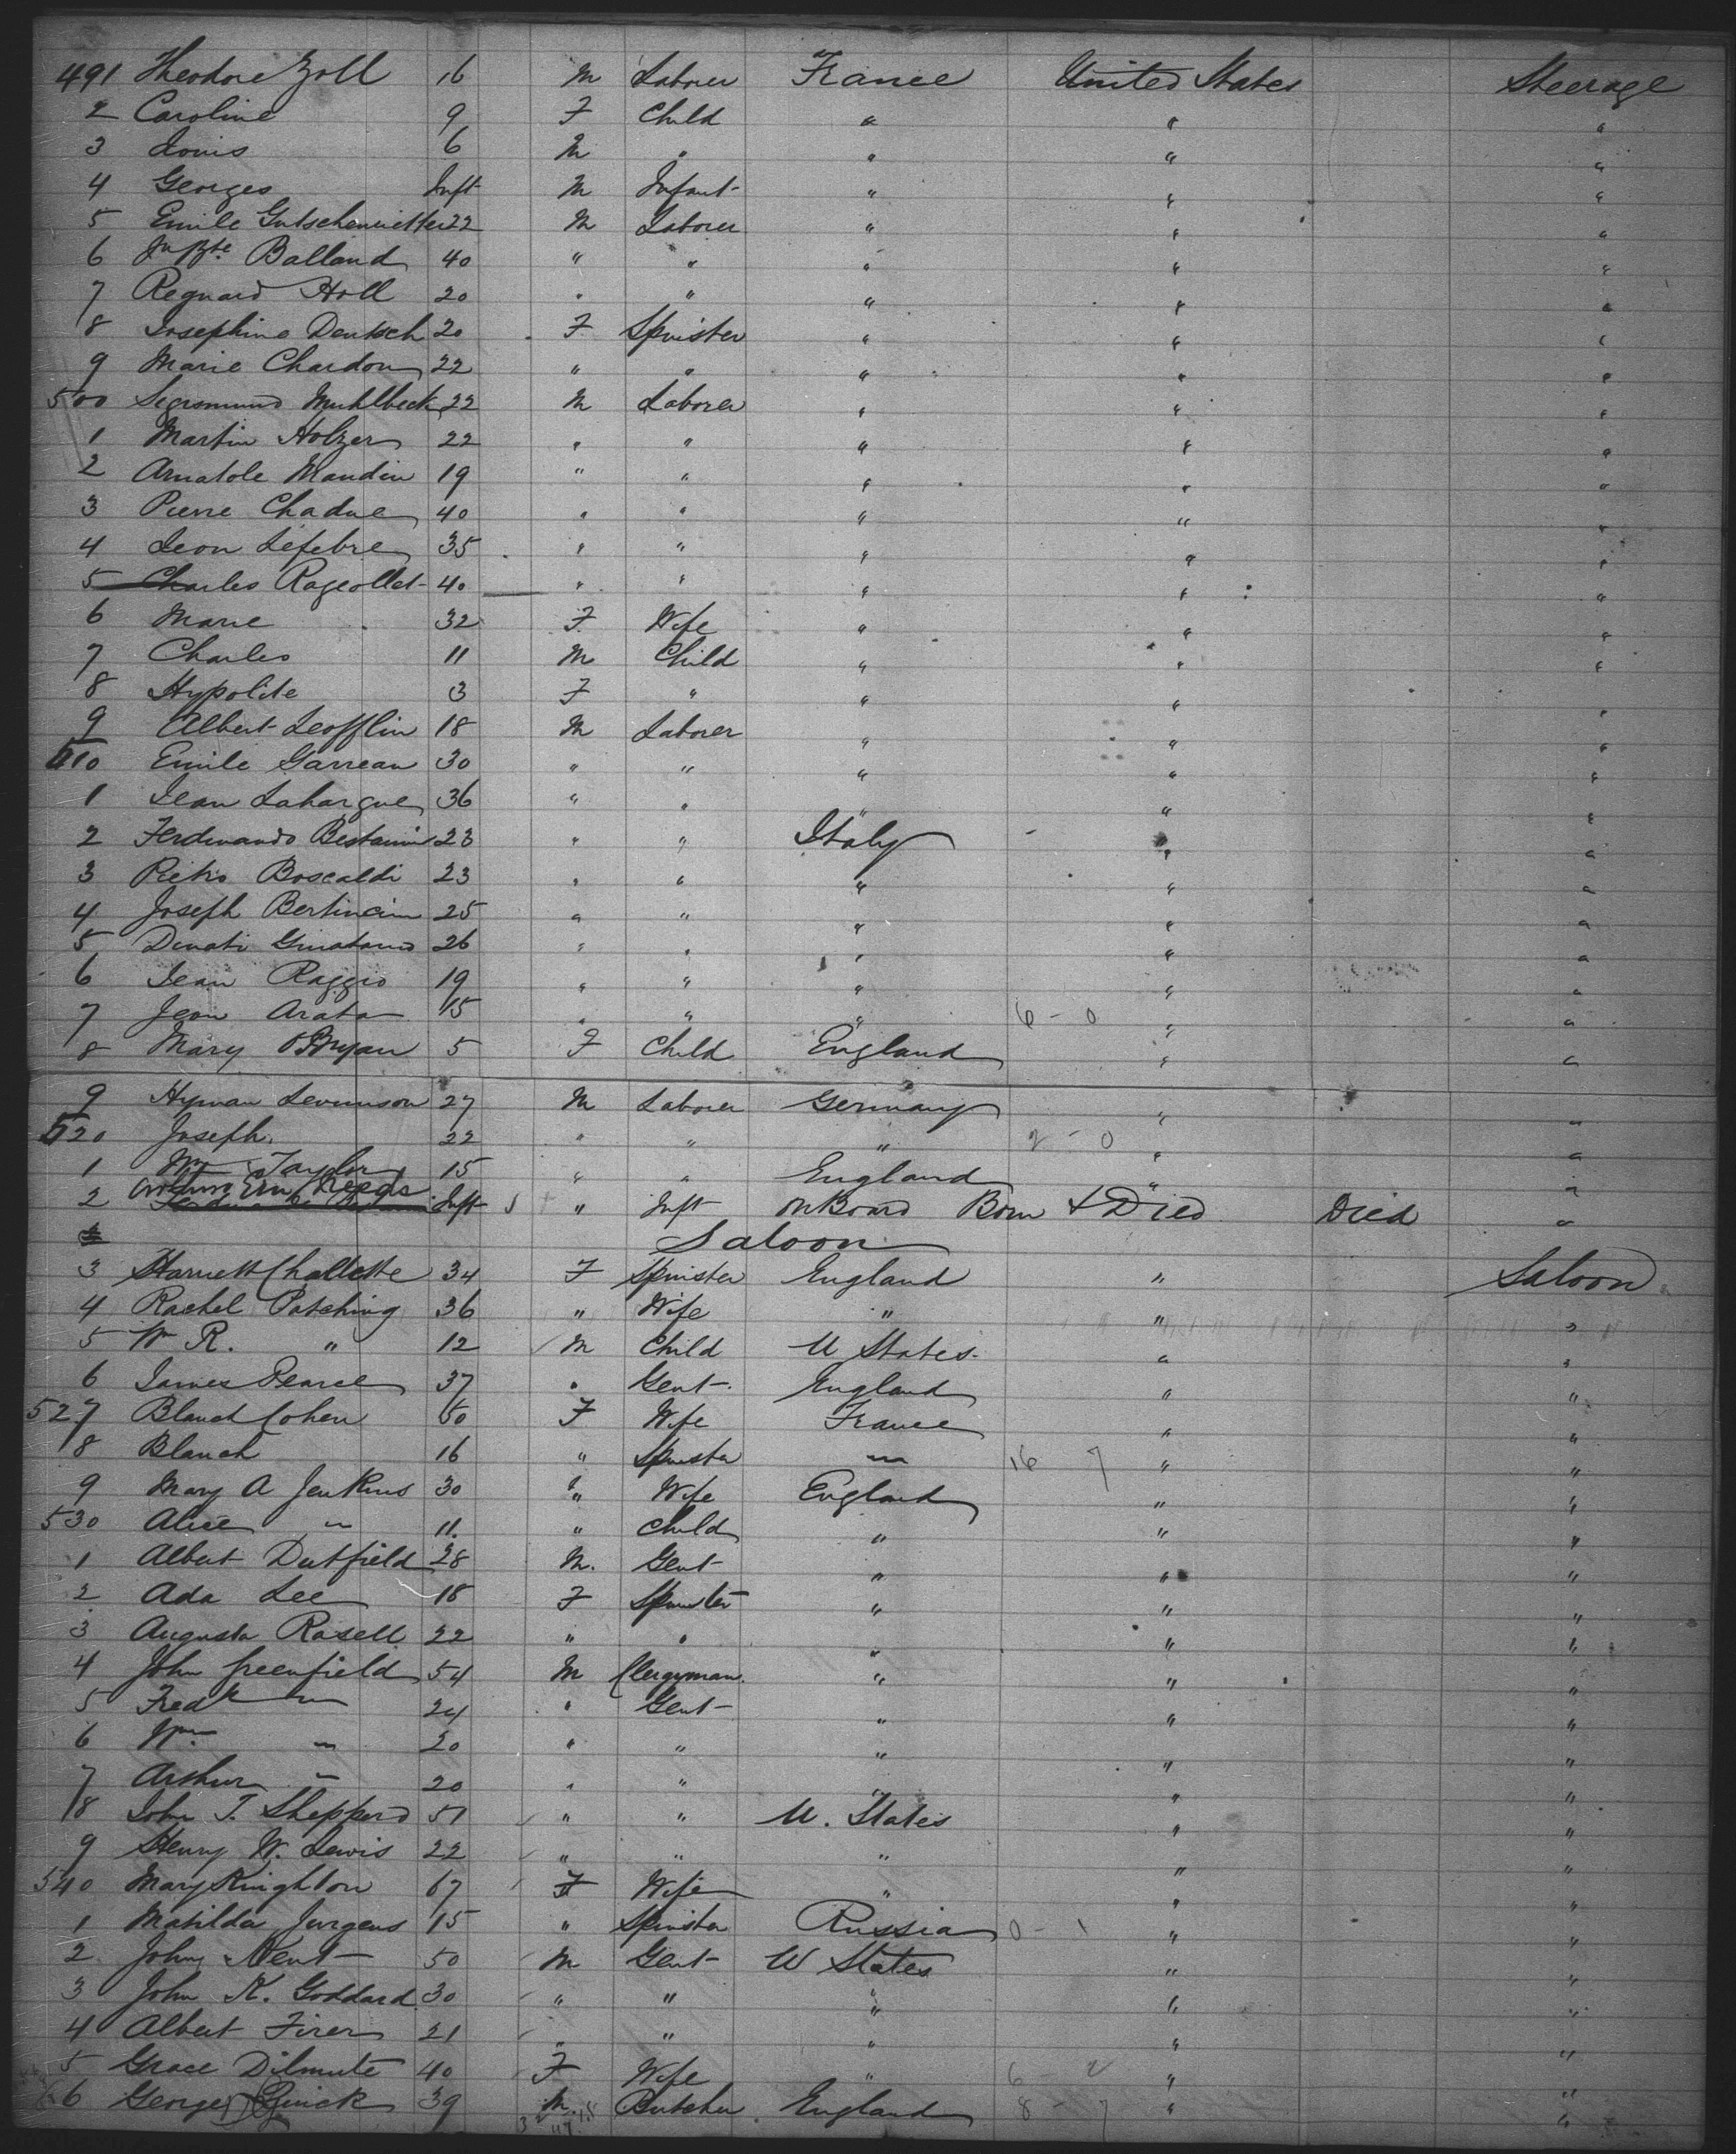 491 Theodore Zoll 16 M Laborer France United States Steerage
2 Caroline 9 F Child " " "
3 Louis 6 M " " " "
4 Georges Inft M Infant " " "
5 Emile Gutschenvietter 22 M Laborer " " "
6 Jn Bte. Balland 40 " " " " "
7 Regnard Holl 20 " " " " "
8 Josephine Deutsch 20 F Spinster " " "
9 Marie Chardon 22 " " " " "
500 Segismund Muhlbeck 22 M Laborer " " "
1 Martin Holzer 22 " " " " "
2 Arnatole Mandin 19 " " " " "
3 Pierre Chadue 40 " " " " "
4 Leon Lefebre 35 " " " " "
5 Charles Rageollet 40 " " " " "
6 Marie 32 F Wife " " "
7 Charles 11 M Child " " "
8 Hypolite 3 F " " " "
9 Albert Leofflin 18 M Laborer " " "
510 Emile Garreau 30 " " " " "
1 Jean Lahargue 36 " " " " "
2 Ferdinando Bestamin 23 " " Italy " "
3 Pietro Boscaldi 23 " " " " "
4 Joseph Bertincim 25 " " " " "
5 Donati 26 " " " " "
6 Jean Raggio 19 " " " " "
7 Jean Arata 15 " " " 6 - 0 " "
8 Mary 5 F Child England " "
9 Hyman Levinson 27 M Laborer Germany " "
520 Joseph 22 " " " 2 - 0 " "
1 Wm Taylor 15 " " England " "
2 Arthur Inft " Inft On Board Born & Died Died "
Saloon
3 Harriett Challette 34 F Spinster England " Saloon
4 Rachel Patching 36 " Wife " " "
5 W R. " 12 M Child U States " "
6 James Pearce 37 " Gent. England " "
527 Blanch Cohen 50 F Wife France " "
8 Blanch 16 " Spinster " 16 7 " "
9 Mary A Jenkins 30 " Wife England " "
530 Alice " 11. " Child " " "
1 Albert Dutfield 28 M. Gent " " "
2 Ada Lee 18 F Spinster " " "
3 Augusta Rosell 22 " " " " "
4 John Greenfield 54 M Clergyman " " "
5 Fredk " 24 " Gent " " "
6 Wm. " 20 " " " " "
7 Arthur " 20 " " " " "
8 John T. Shepperd 51 " " U. States " "
9 Henry W. Lewis 22 " " " " "
540 Mary Knighton 67 F Wife " " "
1 Matilda Jurgens 15 " Spinster Russia 0 - 1 " "
2 John Kent 50 M Gent U States " "
3 John K. Goddard 30 " " " " "
4 Albert Firer 21 " " " " "
5 Grace Dilmute 40 F Wife " 6 - 2 " "
6 George Quick 39 M. Butcher England 8 - 7 " "